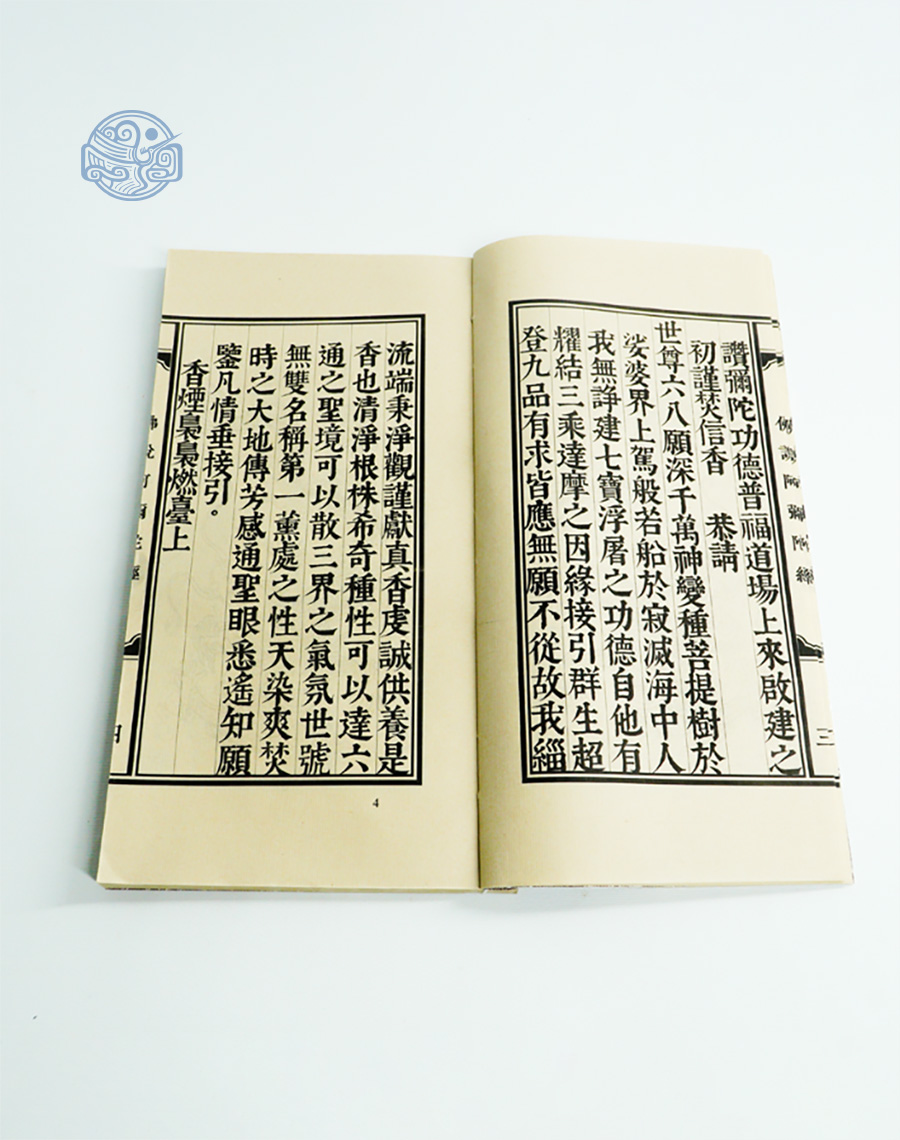 讚彌陀功德普福道場上來啟建之
初謹焚信香　恭請
世尊六八願深千萬神變種菩提樹於
娑婆界上駕般若船於寂滅海中人
我無諍建七寶浮屠之功德自他有
耀結三乘達摩之因緣接引群生超
登九品有求皆應無願不從故我緇
三
流端秉淨觀謹獻真香虔誠供養是
香也清淨根株希奇種性可以達六
通之聖境可以散三界之氣氛世號
無雙名稱第一薰處之性天染爽焚
時之大地傳芳感通聖眼悉遙知願
鑒凡情垂接引。
香煙裊裊燃臺上
4